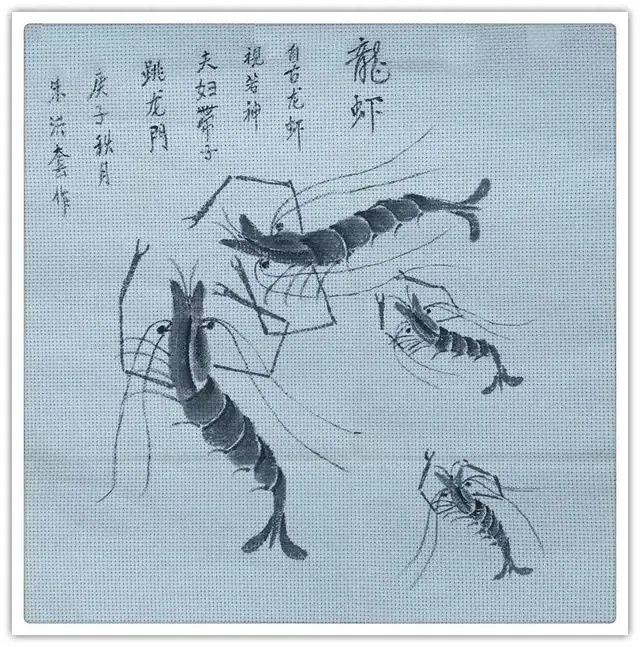 龍虾
自古龙虾
視若神
夫妇帶子
跳龙門
庚子秋月
朱洪套作